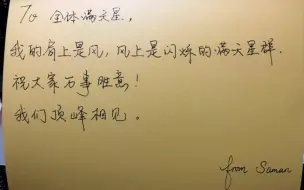 To 全体满天星，
我的肩上是风，风上是闪烁的满天星群.
祝大家万事胜意！
我们顶峰相见。
from Saman